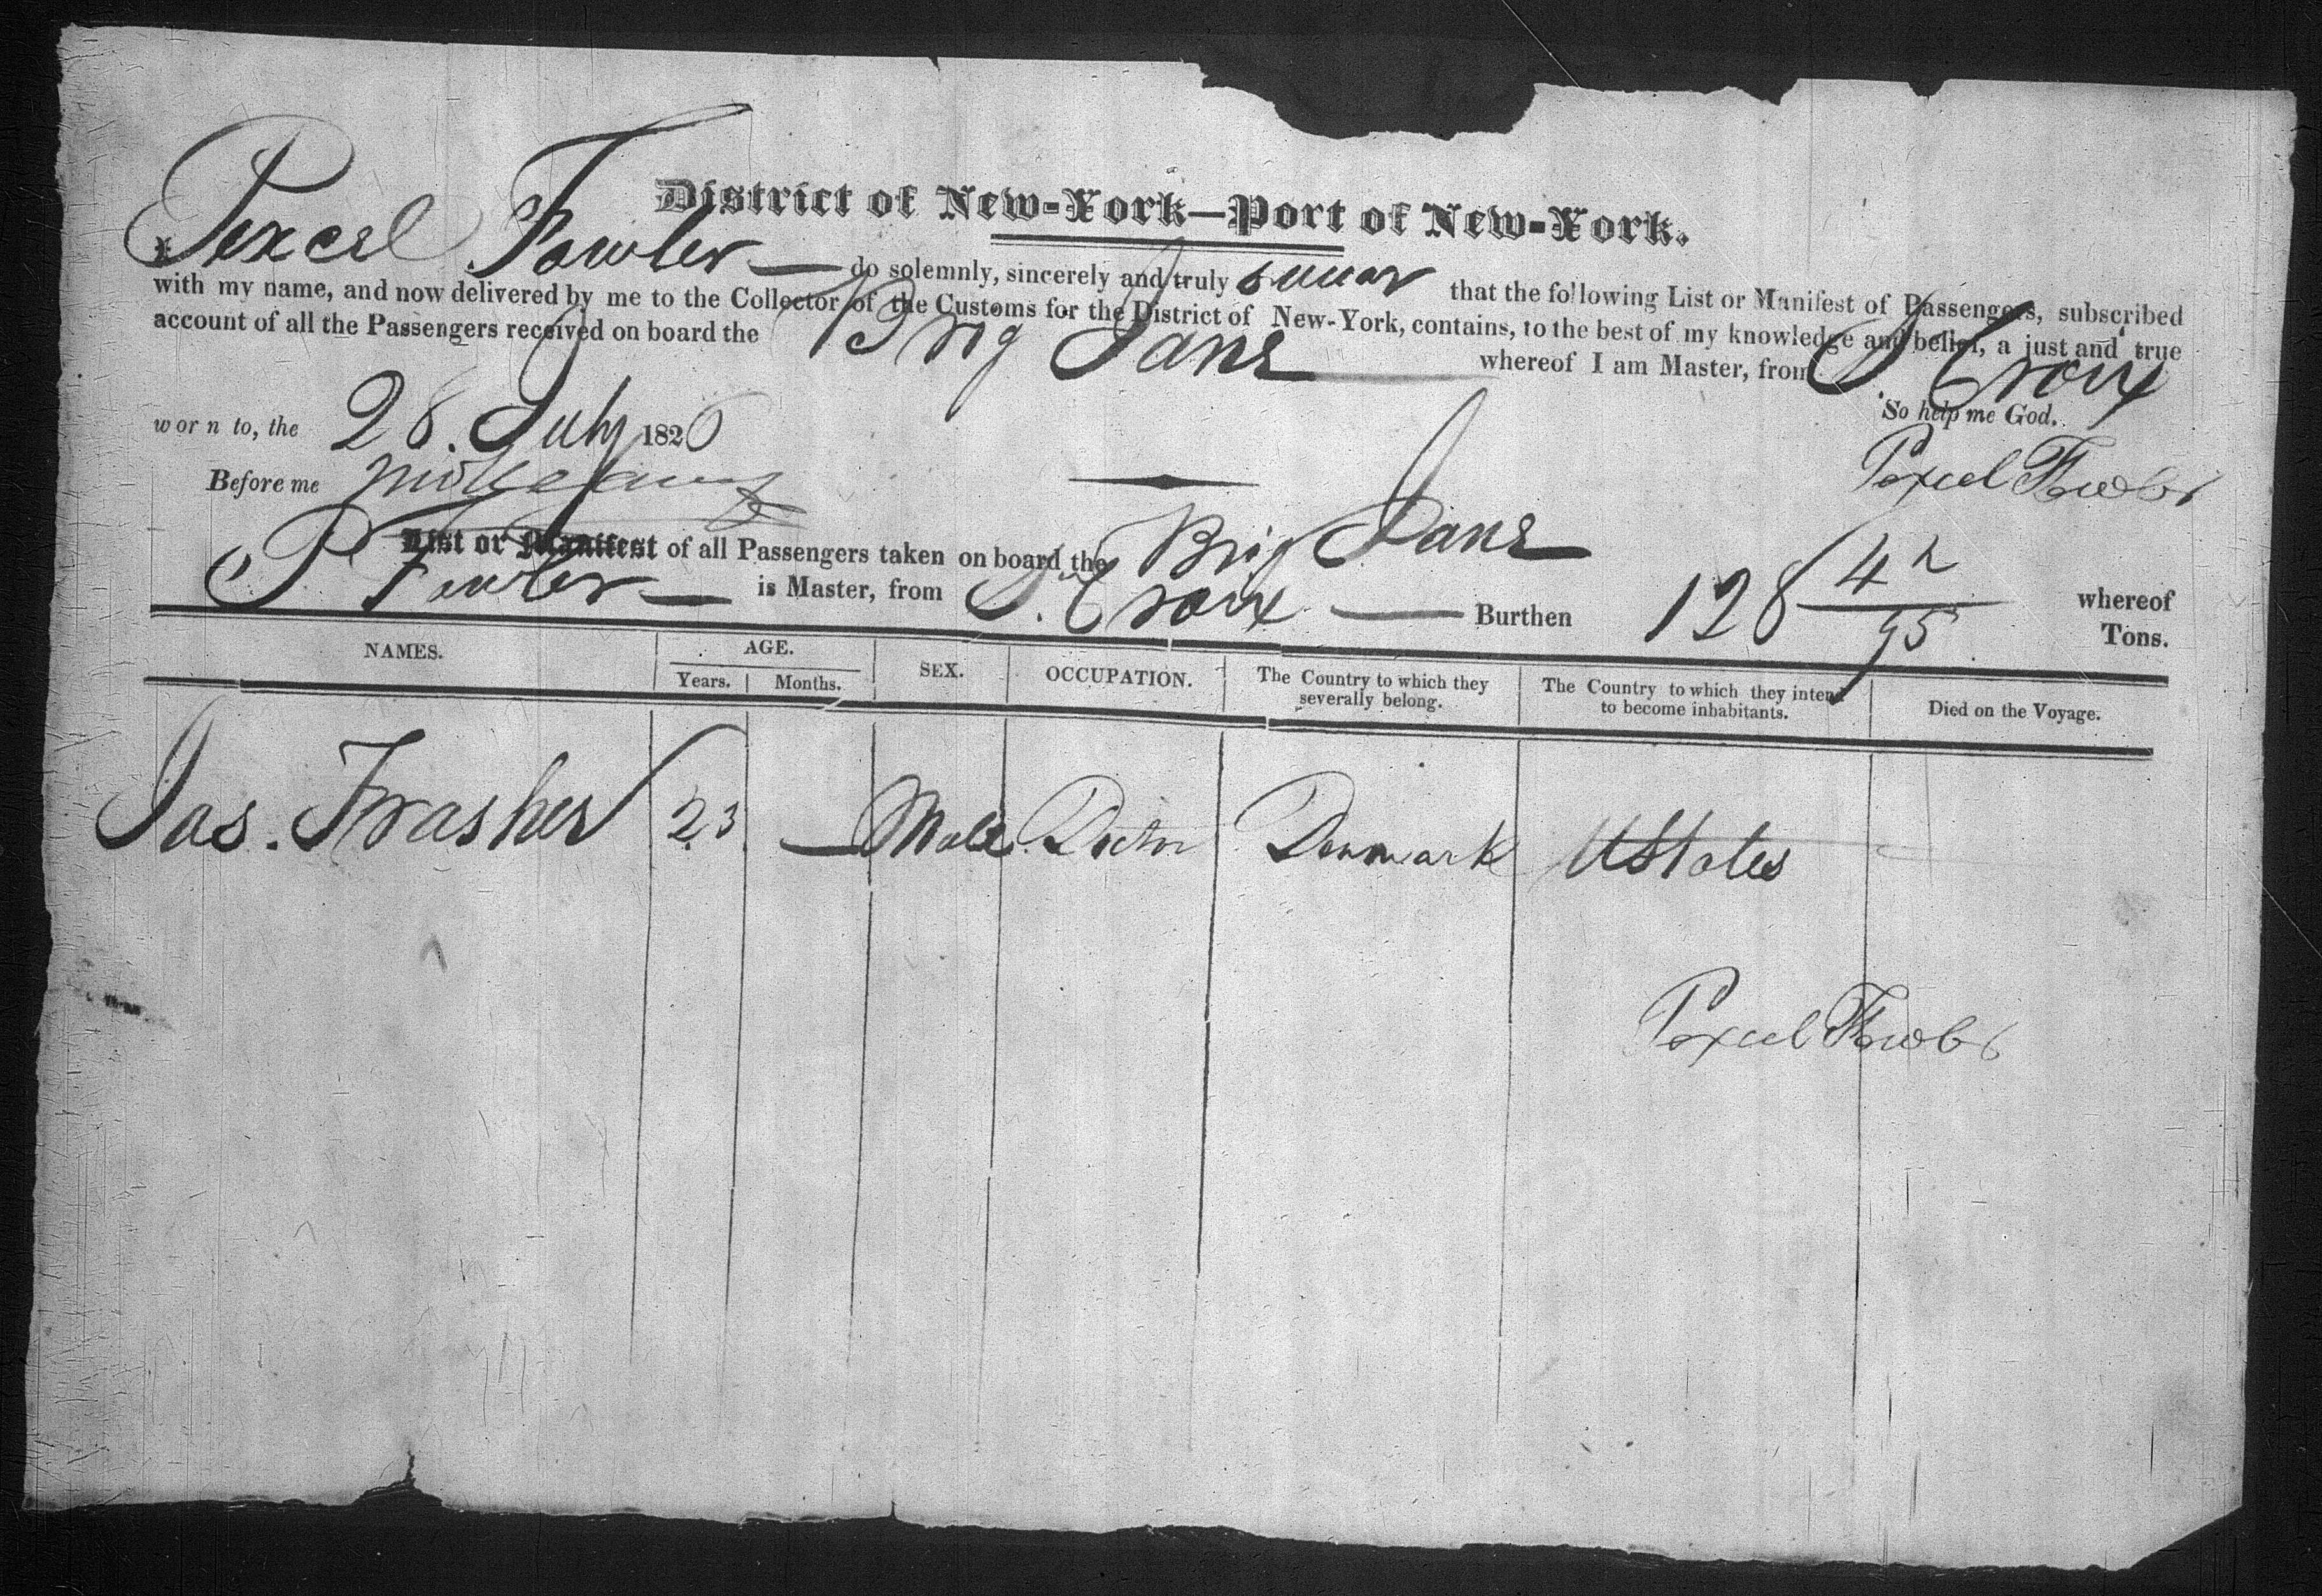 District of New-York—Port of New-York.
I, Pexcel Fowler — do solemnly, sincerely and truly swear that the following List or Manifest of Passengers, subscribed
with my name, and now delivered by me to the Collector of the Customs for the District of New-York, contains, to the best of my knowledge and belief, a just and true
account of all the Passengers received on board the Brig Jane whereof I am Master, from St Croix
So help me God.
worn to, the 28. July 1826
Pexcel Fowler
Before me
List or Manifest of all Passengers taken on board the Brig Jane whereof
P Fowler — is Master, from St. Croix — Burthen 128 42/95 Tons.
NAMES. AGE. SEX. OCCUPATION. The Country to which they severally belong. The Country to which they intend to become inhabitants. Died on the Voyage.
Years. Months.
Jas. Frasher 23 — Male Doctor Denmark UStates
Pexcel Fowler